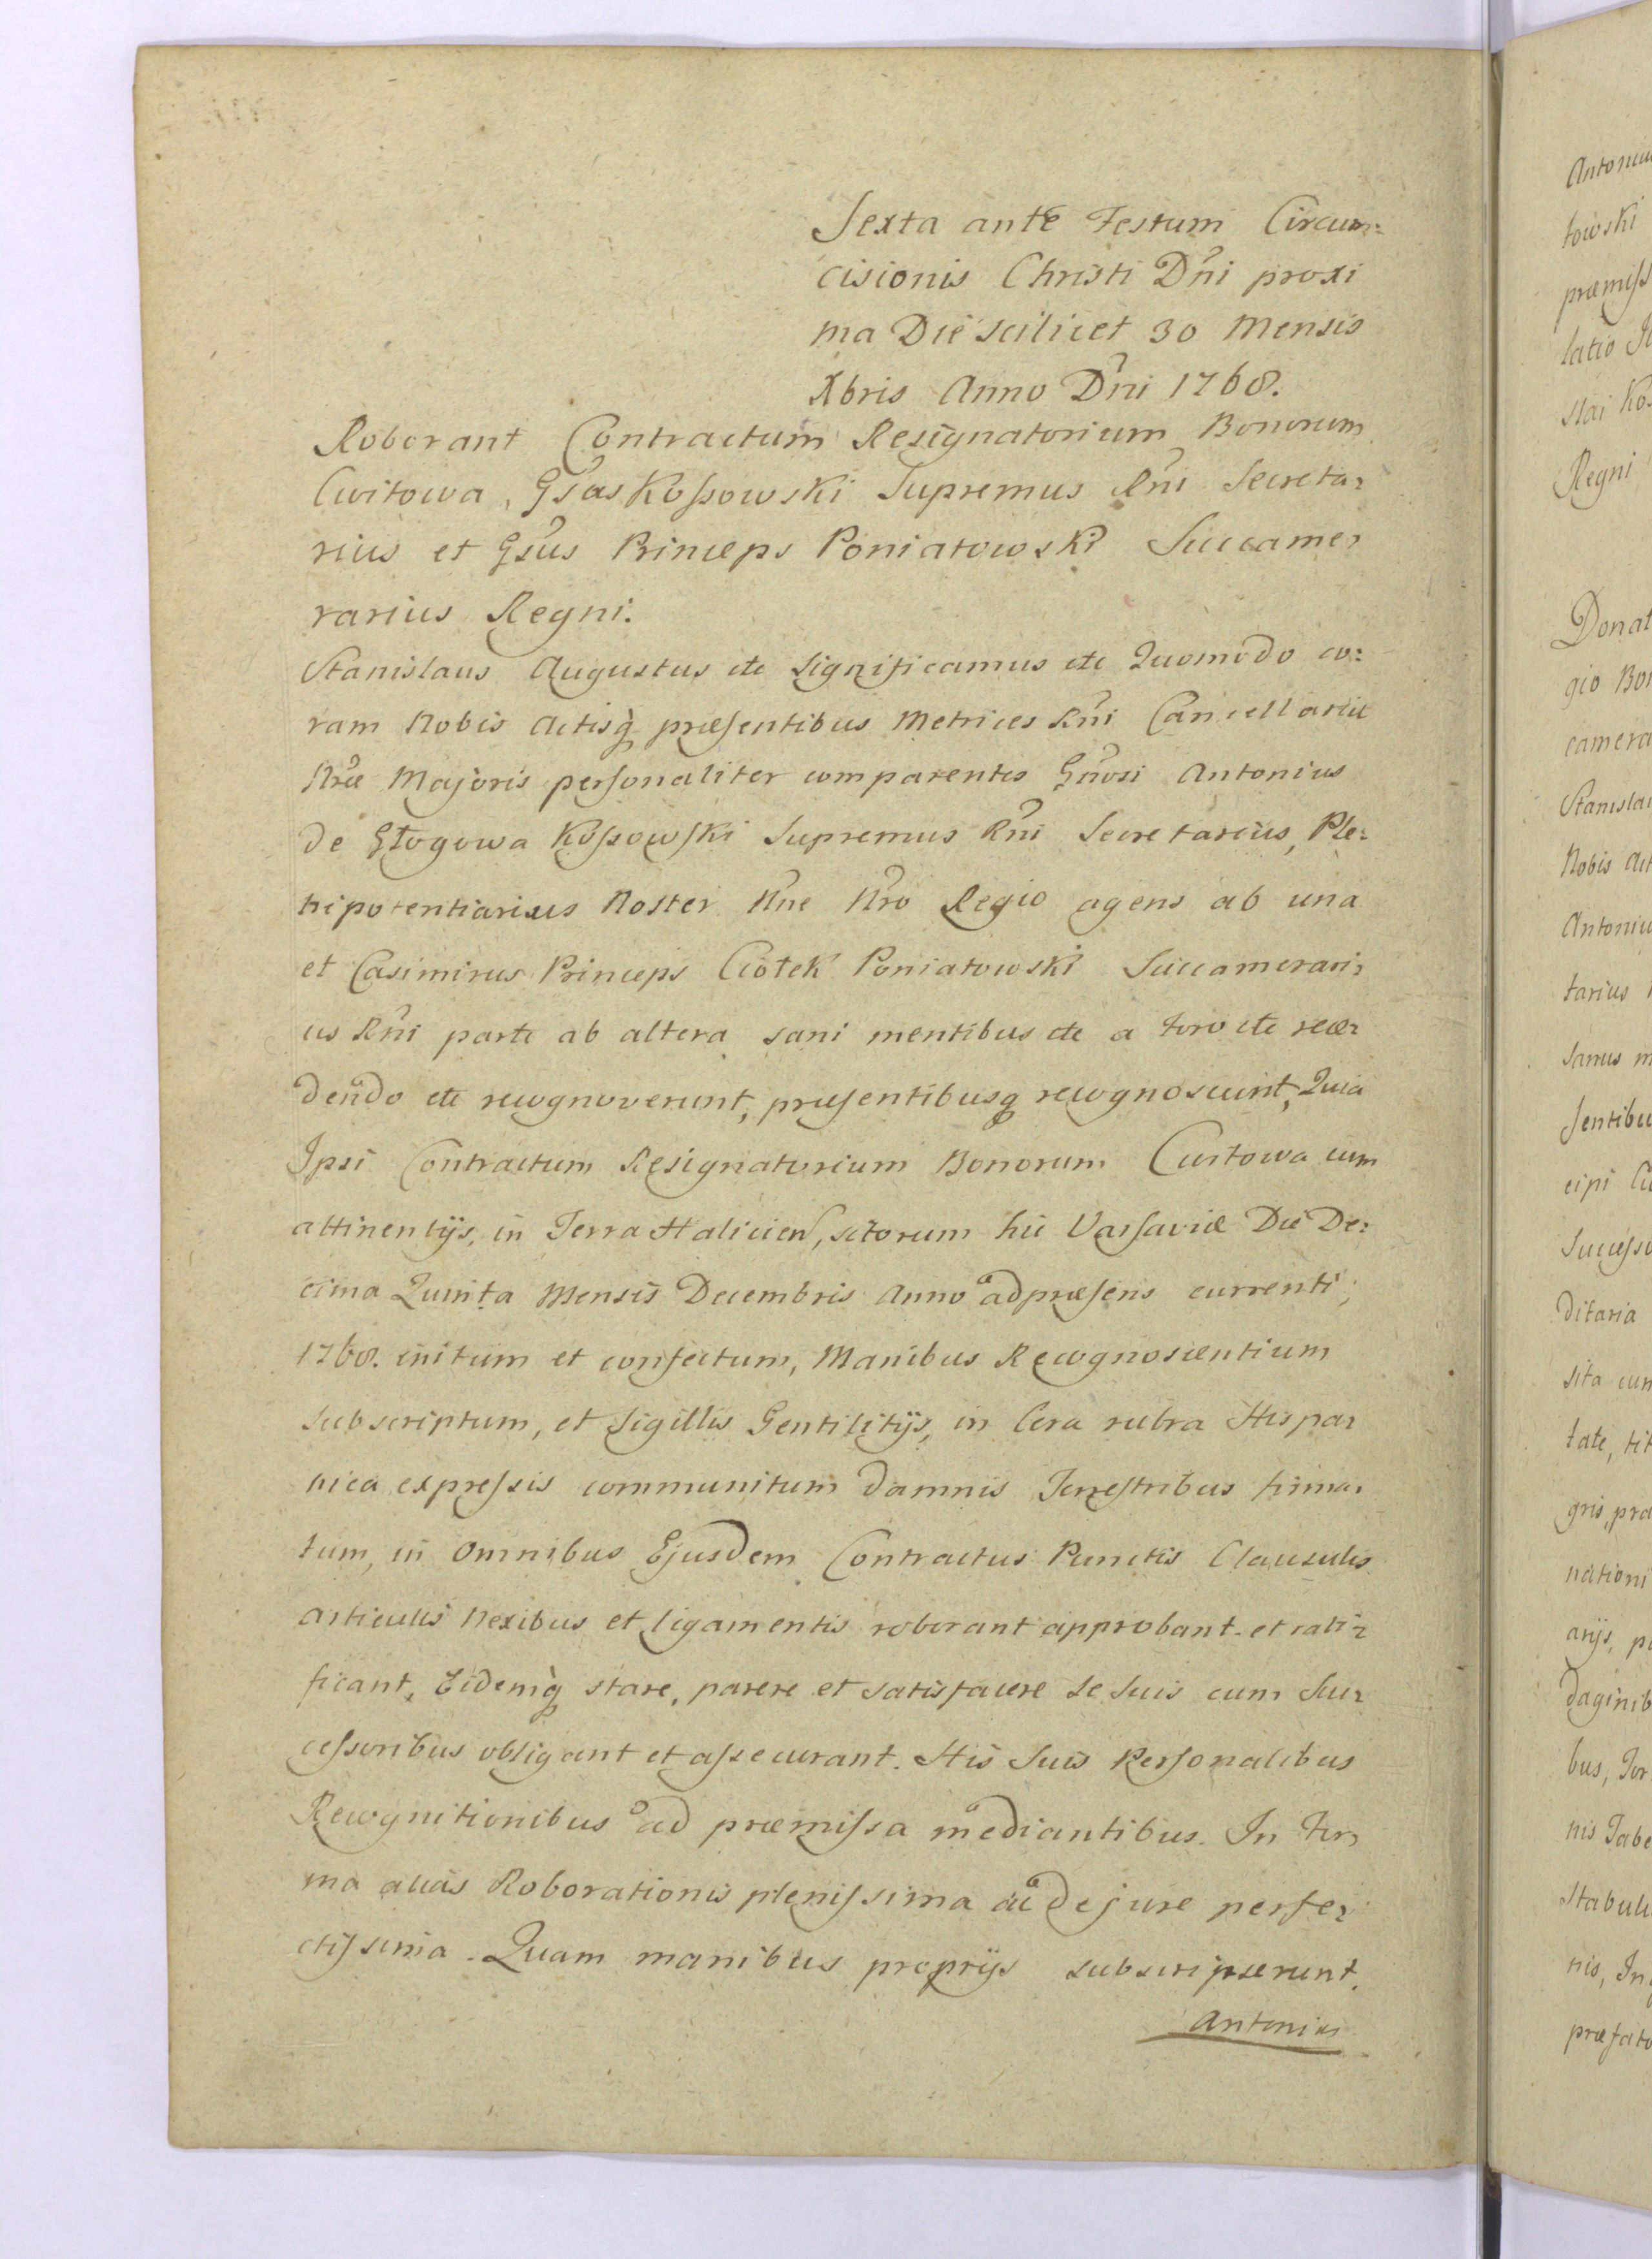 Sexta ante Festum Circum:
cisionis Christi Dñi proxi
ma Die scilicet 30 Mensis
Xbris Anno Dñi 1768.
Roborant Contractum Resignatorium Bonorum
Cwitowa, Gsus Kossowski Supremus Rñi Secreta:
rius et Gsus Princeps Poniatowski Succame:
rarius Regni.
Stanislaus Augustus etc Significamus etc Quomodo co:
ram Nobis Actisq̀ præsentibus Metrices Rñi Cancellariæ
Nræ Majoris personaliter comparentes Gñosi Antonius
de Głogowa Kossowski Supremus Rñi Secretarius, Ple:
nipotentiarius Noster Nñe Nro Regio agens ab una
et Casimirus Princeps Ciołek Poniatowski Succamerari:
us Rñi parte ab altera sani mentibus etc a foro etc rece:
dendo etc recognoverunt, præsentibusq recognoscunt, Quia
Ipsi Contractum Resignatorium Bonorum Cwitowa cum
attinentijs, in Terra Halicien, sitorum hic Varsaviæ Die De:
cima Quinta Mensis Decembris Anno ad præsens currenti,
1768. initum et confectum, Manibus Recognoscentium
subscriptum, et Sigillis Gentilitijs, in Cera rubra Hispa:
nica expressis communitum damnis Terrestribus firma:
tum, in Omnibus Ejusdem Contractus Punctis Clausulis
articulis Nexibus et ligamentis roborant approbant et rati:
ficant, Eidemq̀ stare, parere et satisfacere se suis cum Suc:
cessoribus obligant et assecurant. His Suis Personalibus
Recognitionibus ad præmissa mediantibus. In For:
ma quas Roborationis plenissima ac de jure perfe:
ctissima. Quam manibus proprijs subscripserunt.
Antonius
Antoniu
towski
præmiss
latio
slai Kos
Regni
Donat
gio Bon
camera
Stanislau
Nobis Act
Antoniu
tarius
Sanus m
sentibu
cipi
Successo
ditaria
sita cum
tate, tit
gris, pra
nationi
arijs, p
daginib
bus, For
nis Tabe
Stabuli
nis, In
præfato